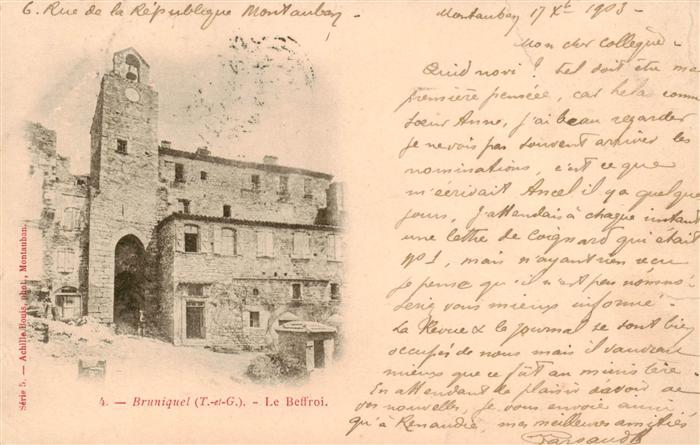 6. Rue de la République Montauban.
Montauban 17 Xbre 1903 -
Mon cher Collègue -
Quid novi? tel doit être ma
première pensée, car hela comme
Soeur Anne, j'ai beau regarder
je ne vois pas souvent arriver les
nominations, c'est ce que
m'écrivait Ancel il y a quelques
jours, J'attendais à chaque instant
une lettre de Coignard qui était
n°1, mais n'ayant rien reçu
je pense qu'il n'est pas nommé.
Serez vous mieux informé.
La Revue & le Journal se sont bien
occupés de nous mais il vaudrait
mieux que ce fût au ministère.
En attendant le plaisir d'avoir de
vos nouvelles, je vous envoie ainsi
qu'à Renaudie, mes meilleures amitiés
Série 5. - Achille Bouis, phot., Montauban.
4. - Bruniquel (T.-et-G.). - Le Beffroi.